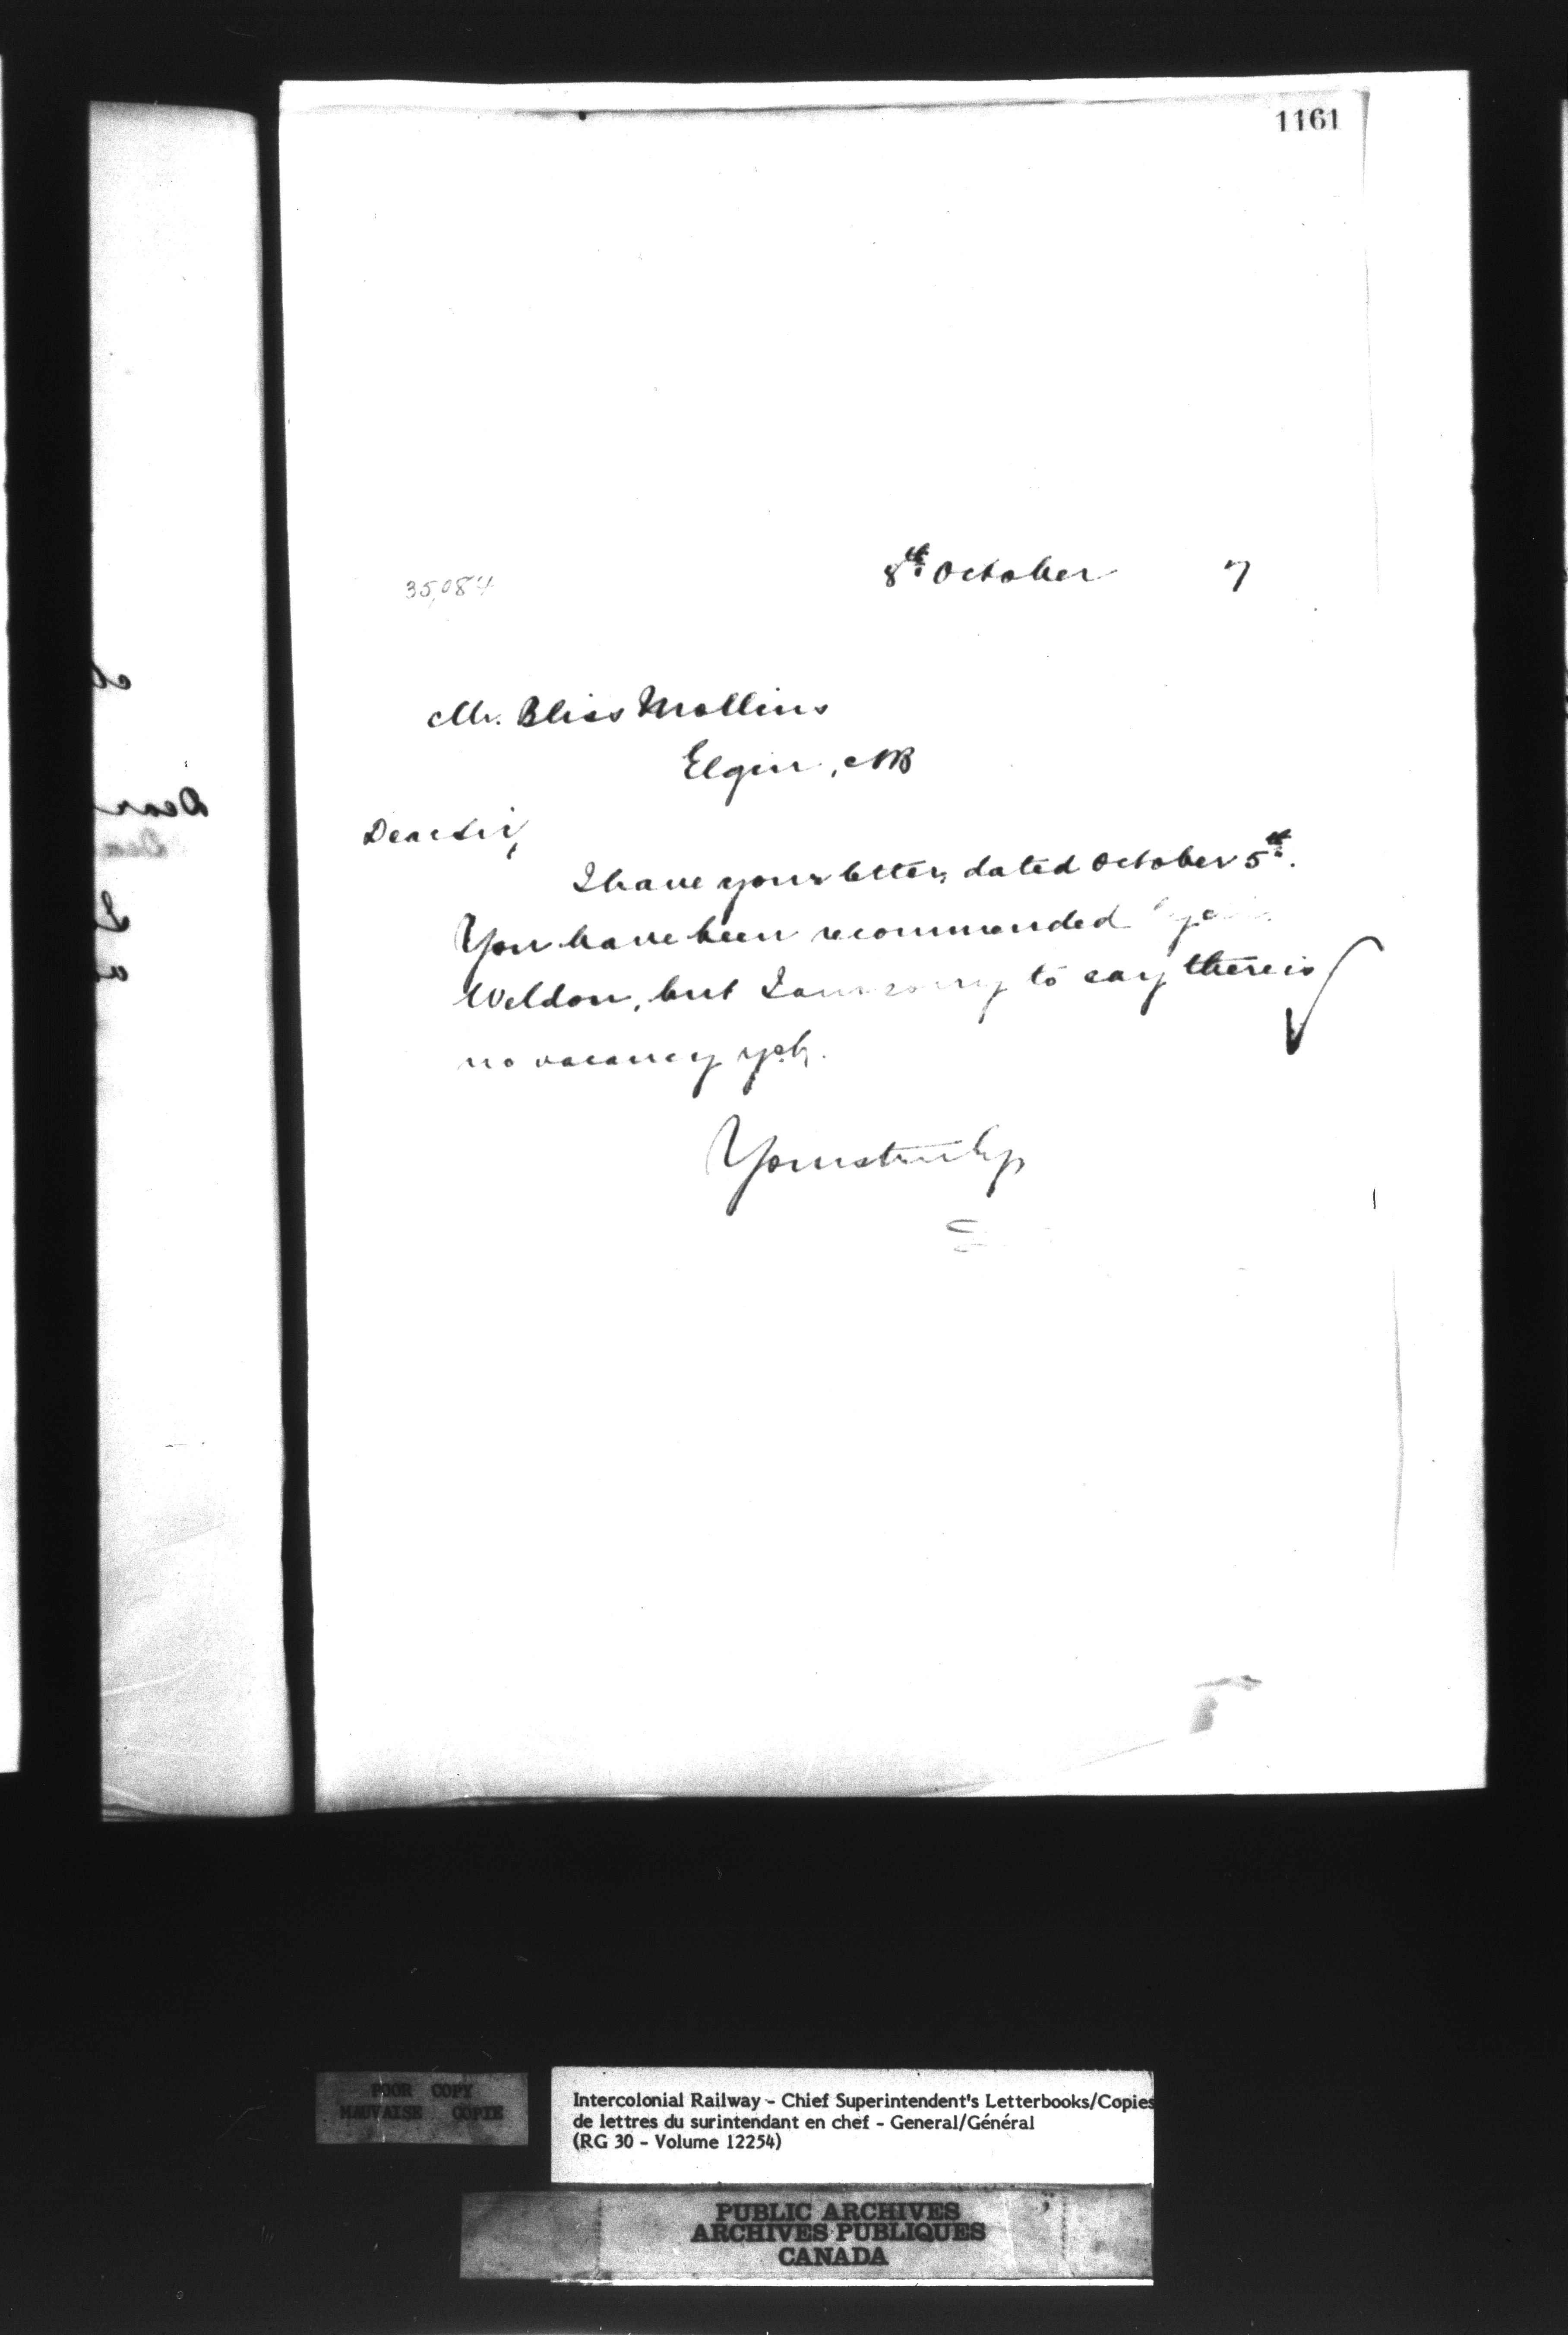 1161
35,084
8th October 7
Mr. Bliss Mollins
Elgin, NB
Dear Sir,
I have your letter, dated October 5th.
You have been recommended
Weldon, but I am sorry to say there is
no vacancy yet.
Yours truly
Dear
POOR COPY
MAUVAISE COPIE
Intercolonial Railway - Chief Superintendent's Letterbooks/Copies
de lettres du surintendant en chef - General/Général
(RG 30 - Volume 12254)
PUBLIC ARCHIVES
ARCHIVES PUBLIQUES
CANADA